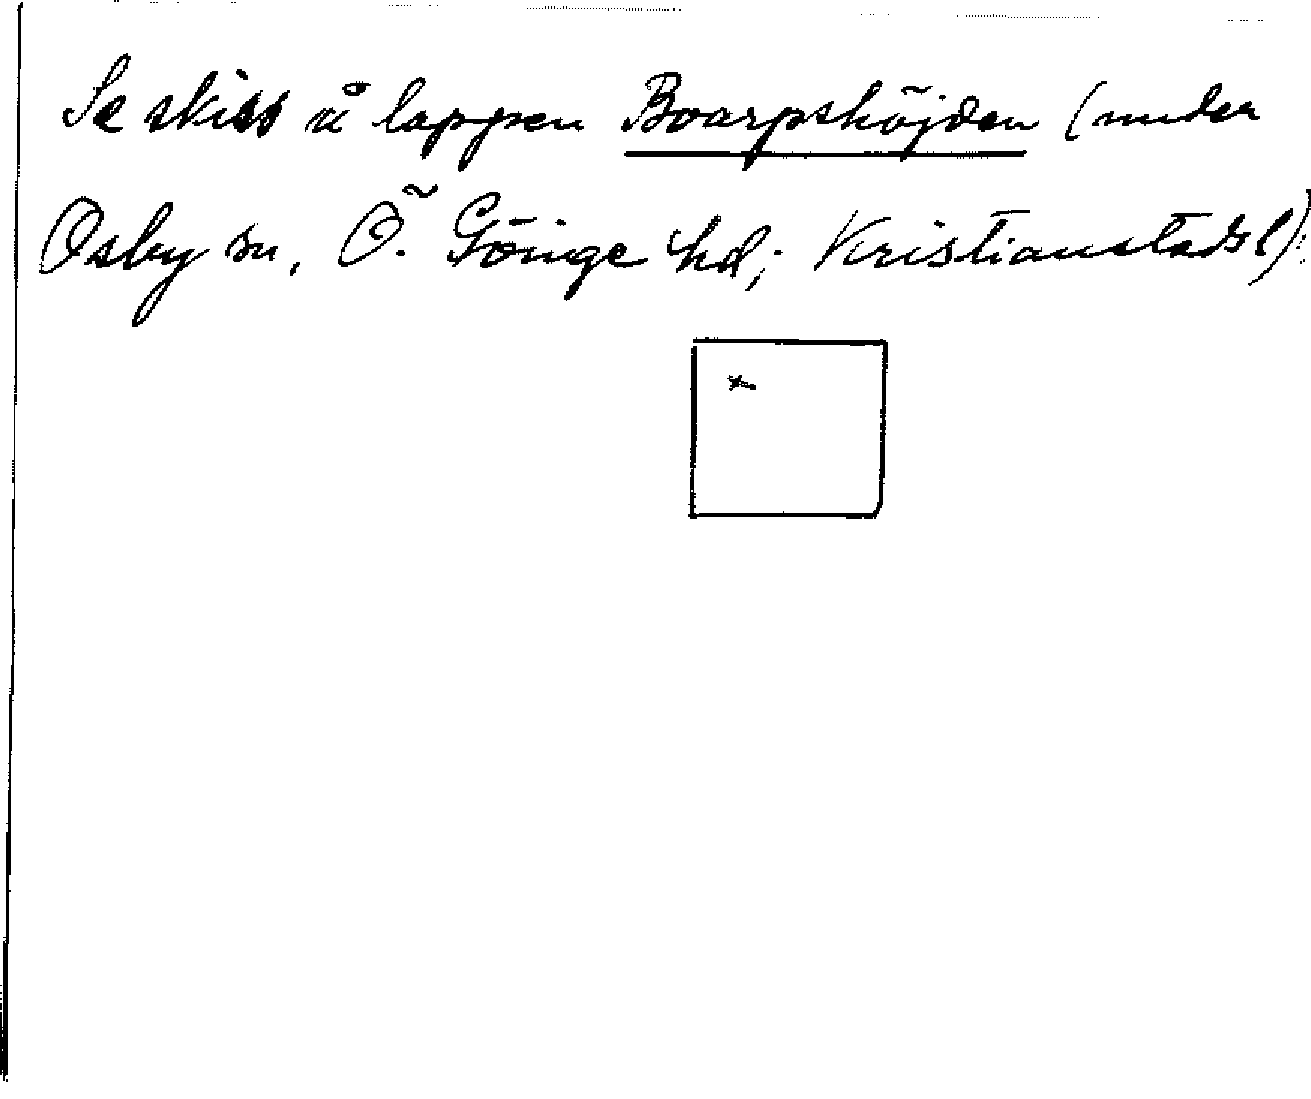 Se skiss å lappen Boarpshöjden (under
Osby sn, Ö. Göinge hd; Kristianstads l)